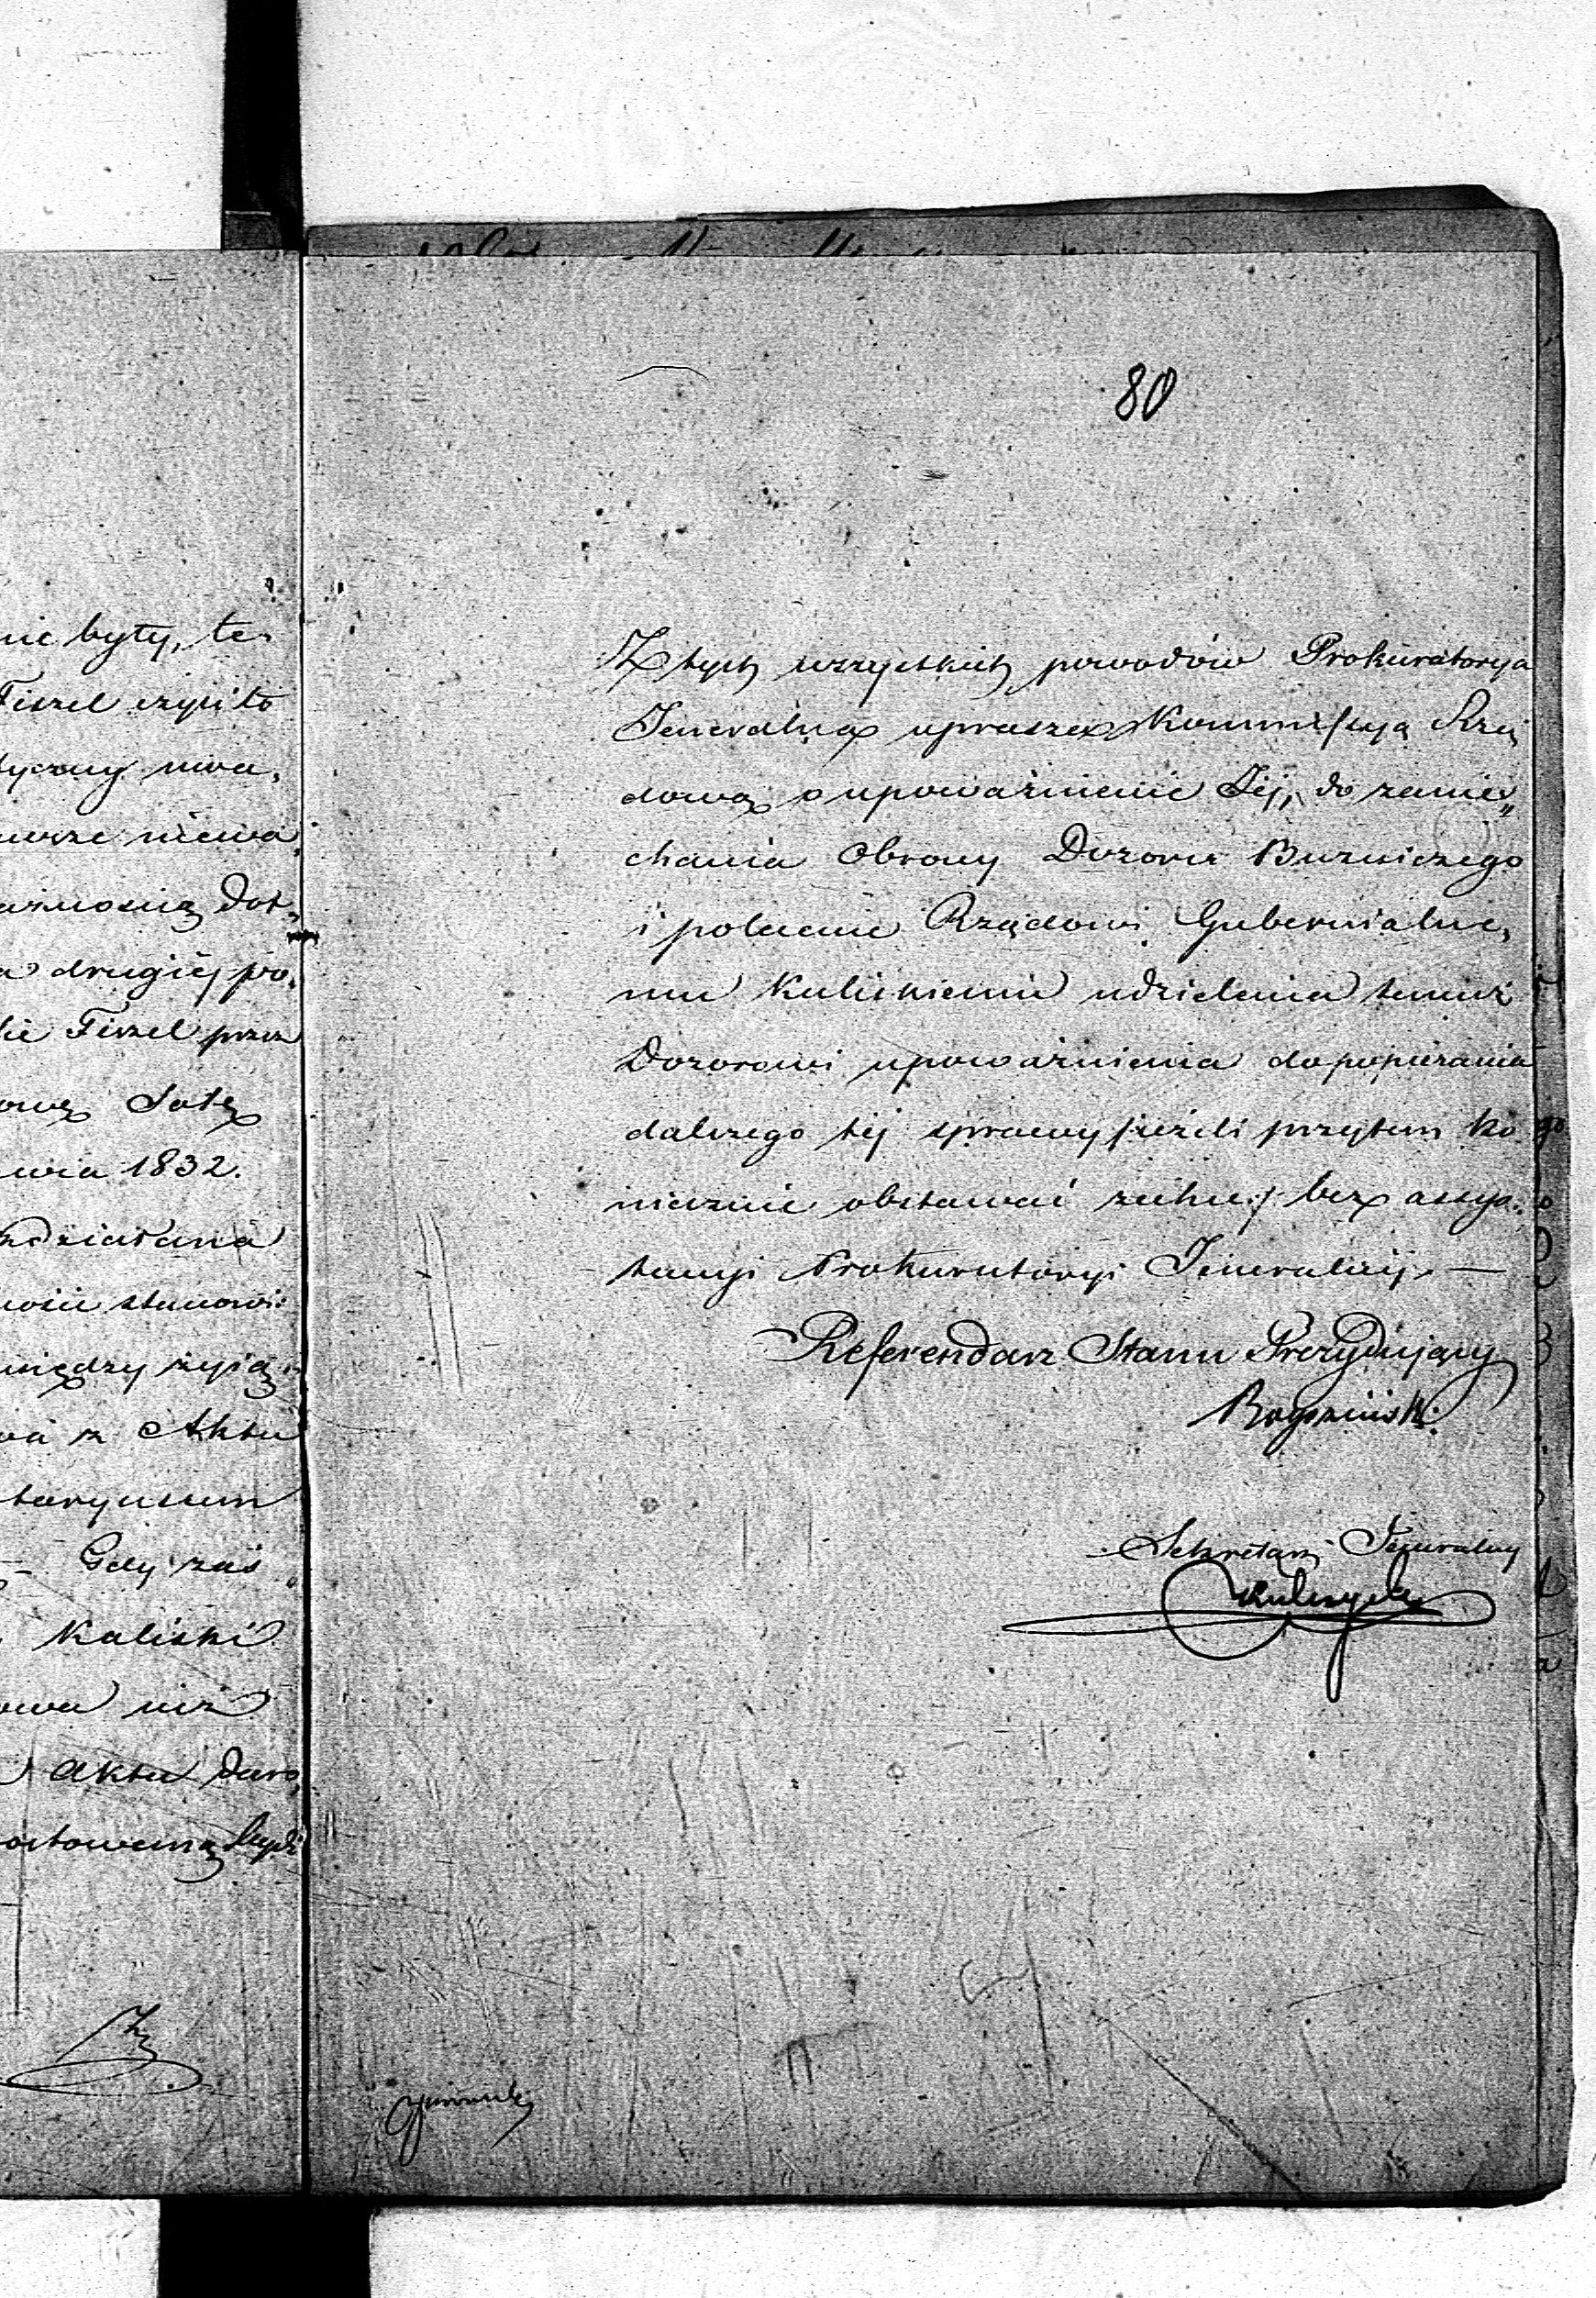 nie były, te
Fiszel czyli to
tyczny uwa,
wsze niewa,
ważnością dot,
a drugiéj po,
kie Fiszel przez
ową Datę
wia 1832.
zdziałana
ności stanowi:
między żyią,
wa z Aktu
taryuszem
Gdy zaś
Kaliski
owa niż
Aktu daro,
ostowemą
80
Z tych wszystkich powodów Prokuratorya
Jeneralna uprasza Kommissyą Rzą,
dową o upoważnienie Jéj, do zanie„
chania Obrony Dozoru Bużniczego
i polecenie Rządowi Gubernialne,
mu Kaliskiemu udzielenia temuż
Dozorowi upoważnienia do popierania
dalszego téj sprawy /:jeżeli przytem ko
niecznie obstawać zechce:/ bez assys:
tencyi Prokuratoryi Jeneralnéj. —
Referendarz Stanu Prezydujący
Sekretarz Jeneralny